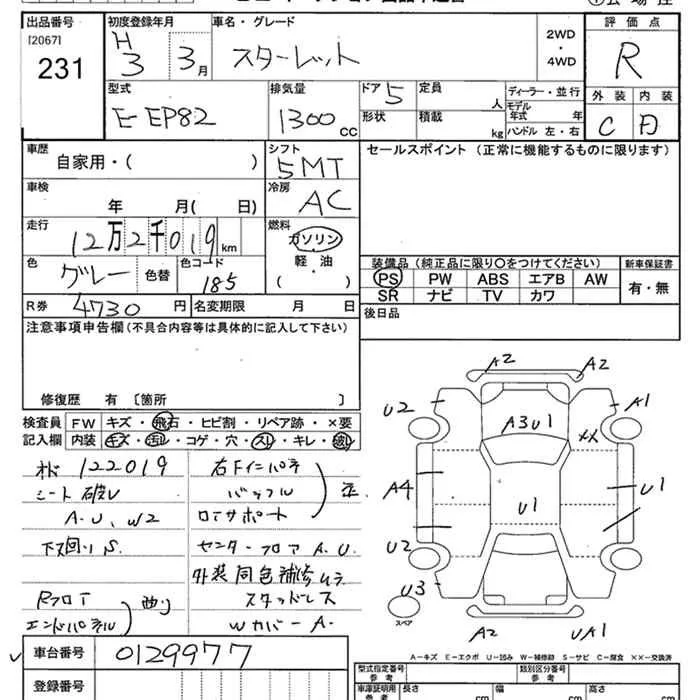 出品番号
[2067]
231
初度登録年月
H
3 3月
車名・グレード
スターレット
2WD
・
4WD
評価点
R
型式
E-EP82
排気量
1300cc
ドア 5
形状
定員
人
積載
kg
ディーラー・並行
モデル
年式 年
ハンドル 左・右
外装 内装
C D
車歴
自家用・( )
シフト
5MT
セールスポイント (正常に機能するものに限ります)
車検
年 月( 日)
冷房
AC
走行
12万2千019km
燃料
ガソリン
軽・油
( )
色
グレー
色替
色コード
185
装備品(純正品に限り○をつけてください)
新車保証書
PS PW ABS エアB AW
SR ナビ TV カワ
有・無
R券 4730円
名変期限 月 日
後日品
注意事項申告欄(不具合内容等は具体的に記入して下さい)
修復歴 有 〔箇所 〕
検査員
記入欄
FW キズ・飛石・ヒビ割・リペア跡・×要
内装 キズ・汚レ・コゲ・穴・スレ・キレ・破レ
122019
シート破レ
A.U、W2
下廻りS.
Rフロア
エンドパネル
右Fインパネ
バッフル
ロアサポート
センターフロアA.U.
外装同色補修ムラ
スタッドレス
WカバーA.
A2 A2
U2 A1
A3U1
XX
A4 U1
U1
U2
U3
スペア
A2 UA1
A-キズ E-エクボ U-凹み W-補修跡 S-サビ C-腐食 ××-交換済
車台番号 0129977
登録番号
型式指定番号
参考
類別区分番号
参考
車庫証明用
参考
長さ
cm
幅
cm
高さ
cm